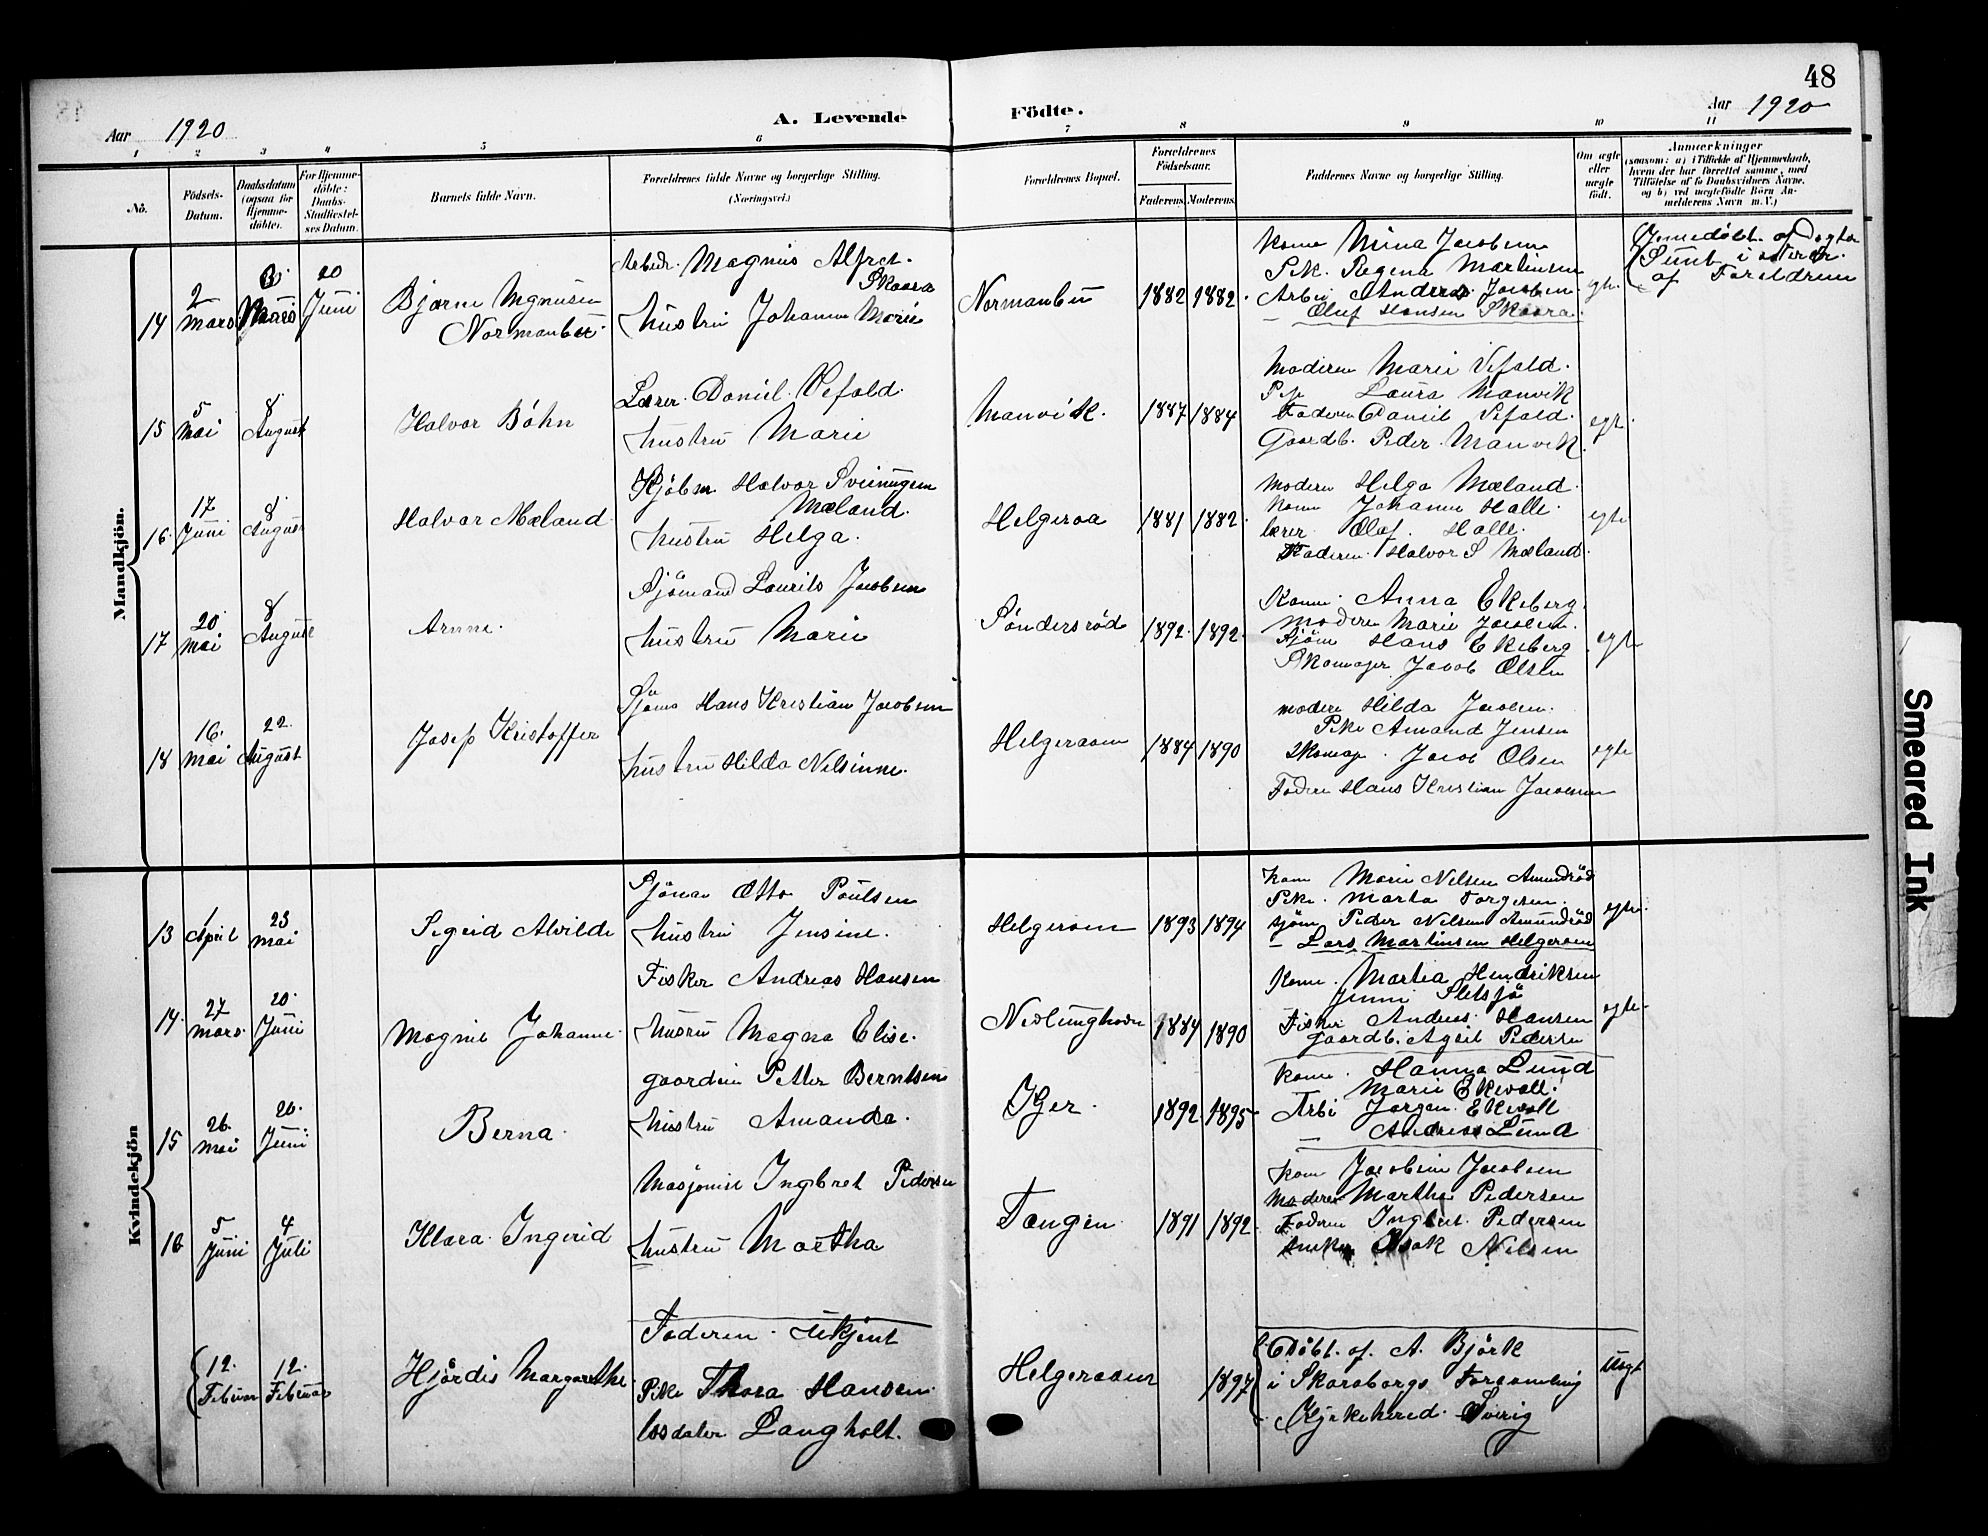 48
Aar 1920
A. Levende Födte.
Aar 1920
1 2 3 4 5 6 7 8 9 10 11
No.
Födsels-Datum.
Daabsdatum (ogsaa for Hjemme-döbte).
For Hjemme-döbte: Daabs-Stadfæstel-ses Datum.
Barnets fulde Navn.
Forældrenes fulde Navne og borgerlige Stilling.
(Næringsvei.)
Forældrenes Bopæl.
Forældrenes Födselsaar.
Faderens. Moderens.
Faddernes Navne og borgerlige Stilling.
Om ægte eller uægte födt.
Anmærkninger
(saasom: a) i Tilfælde af Hjemmedaab, hvem der har forrettet samme, med Tilföielse af to Daabsvidners Navne, og b) ved uægtefödte Börn An-melderens Navn m. V.)
Mandkjön.
14
2 Mars
20 Juni
Bjarne
Arbeidr. Magnus Alfret Skaara
hustru Johanne Marie
1882 1882
Kone Mina Jacobsen
Pik. Regena Martinsen
Arbei Anders Jacobsen
Oluf Hansen Skaara
af Foreldrene
15
5 Mai
8 August
Halvor Böhn
Lærer Daniel Vefald
hustru Marie
Manvik.
1887 1884
Moderen Marie Vefald.
Laura Manvik
Faderen Daniel Vefald.
Gaardb. Peder Manvik
egt.
16
17 Juni
8 August
Halvor Mæland
Kjöbm Halvor Sveinugsen Mæland.
hustru Helga.
Helgeroa
1881 1882
Modern Helga Mæland
Kone Johanne Halle.
lærer Olaf Halle.
Faderen. Halvor S Mæland.
egte
17
20 Mai
8 August
Arnne.
Sjömand Laurits Jacobsen
hustru Marie
Söndersröd
1892 1892
Kone. Anna Ekeberg.
Modern Marie Jacobsen.
Sjöm Hans Ekeberg
Skomager Jacob Olsen
egte
18
16. Mai
22. August
Josep Kristoffer
Sjöma Hans Kristian Jacobsen
hustru Hilda Nilsinne.
Helgeraaen
1884 1890
modern Hilda Jacobsen.
Pike Amand Jensen
Skomager. Jacob Olsen
Fadern Hans Kristian Jacobsen
egte
Kvindekjön
13
April
23 Mai
Sigrid Alvilde
Sjöman Otto Poulsen
hustru Jensine.
Helgeroen
1893 1894
Kone Marie Nilsen Amundröd
Pike. Marta Torgersen.
sjöm Peder Nilsen Amundröd
Lars Martinsen Helgeroen
egte
14
27 Mars
20 Juni
Magnil Johanne
Fisker Andreas Hansen
hustru Magna Elise.
Nevlunghavn
1884 1890
Kone. Martea Hendriksen
Jenni Sletsjö
Fisker Andreas Hansen
gaardb. Agrit Pedersen
egte
15
26. Mai
20. Juni
Berna
gaardein Petter Berntsen
hustru Amanda.
1892 1895
Kone. Hanna Lund
Marie Ekvall.
Arbi Jørgen Ekvall
Andreas Lund
16
5 Juni
4 Juli
Klara Ingerid
Masjonist Ingebret Pedersen
hustru Martha
Tangen
1891 1892
Kone Jacobine Jacobsen
Moderen Marthe Pedersen
Faderen Ingbret Pedersen
Isak Nilsen
12. Februar
12. Februar
Hjördis Margarethe
Faderen ukjent
Pike Thora Hansen
Langholt.
Helgeraaen
1897
Döbt. af. A. Björk
i Skaraborgs Forsamling
Kyrkehered. Sverig
Uegt
Smeared Ink